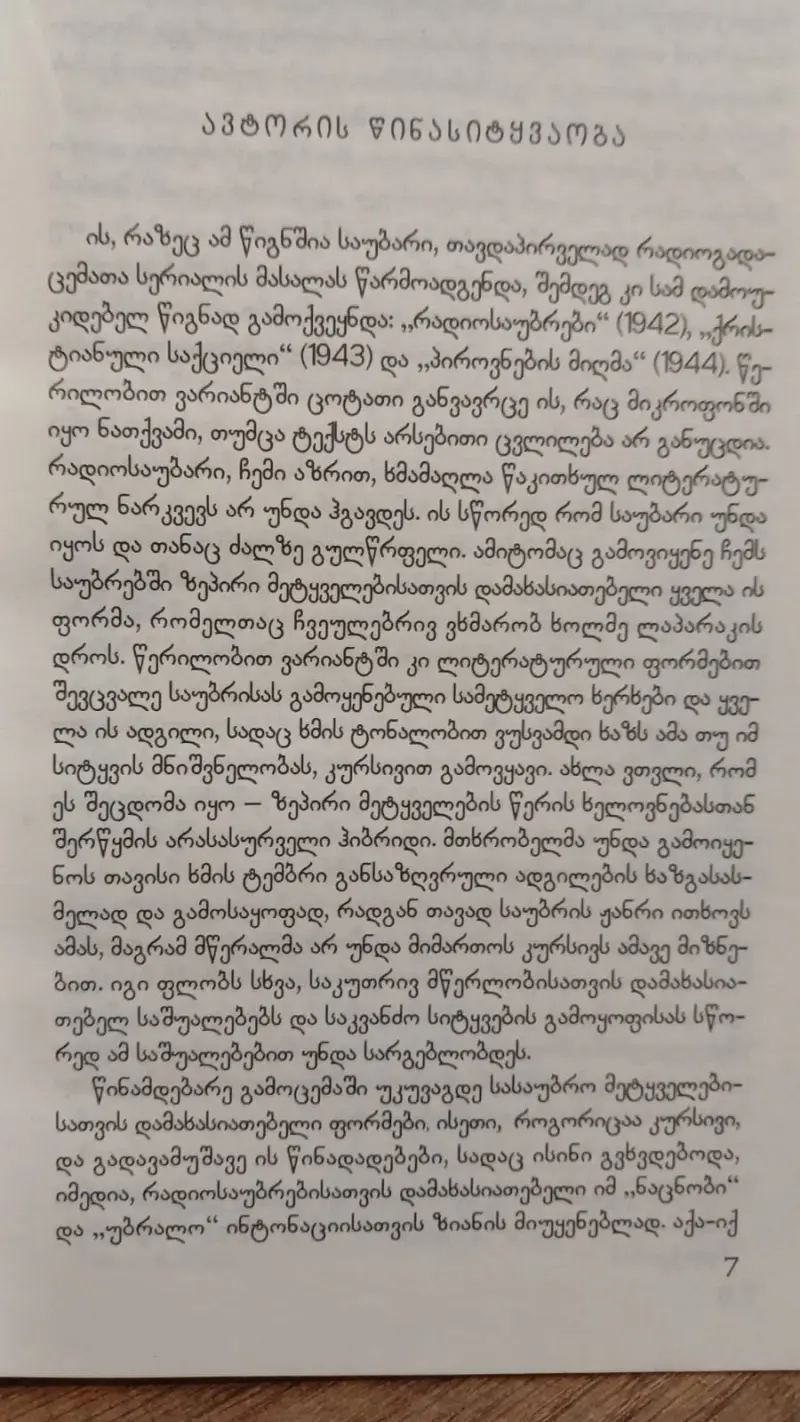 ავტორის წინასიტყვაობა
ის, რაზეც ამ წიგნშია საუბარი, თავდაპირველად რადიოგადა-
ცემათა სერიალის მასალას წარმოადგენდა, შემდეგ კი სამ დამოუ-
კიდებელ წიგნად გამოქვეყნდა: „რადიოსაუბრები“ (1942), „ქრის-
ტიანული საქციელი“ (1943) და „პიროვნების მიღმა“ (1944). წე-
რილობით ვარიანტში ცოტათი განვავრცე ის, რაც მიკროფონში
იყო ნათქვამი, თუმცა ტექსტს არსებითი ცვლილება არ განუცდია.
რადიოსაუბარი, ჩემი აზრით, ხმამაღლა წაკითხულ ლიტერატუ-
რულ ნარკვევს არ უნდა ჰგავდეს. ის სწორედ რომ საუბარი უნდა
იყოს და თანაც ძალზე გულწრფელი. ამიტომაც გამოვიყენე ჩემს
საუბრებში ზეპირი მეტყველებისათვის დამახასიათებელი ყველა ის
ფორმა, რომელთაც ჩვეულებრივ ვხმარობ ხოლმე ლაპარაკის
დროს. წერილობით ვარიანტში კი ლიტერატურული ფორმებით
შევცვალე საუბრისას გამოყენებული სამეტყველო ხერხები და ყვე-
ლა ის ადგილი, სადაც ხმის ტონალობით ვუსვამდი ხაზს ამა თუ იმ
სიტყვის მნიშვნელობას, კურსივით გამოვყავი. ახლა ვთვლი, რომ
ეს შეცდომა იყო — ზეპირი მეტყველების წერის ხელოვნებასთან
შერწყმის არასასურველი ჰიბრიდი. მთხრობელმა უნდა გამოიყე-
ნოს თავისი ხმის ტემბრი განსაზღვრული ადგილების ხაზგასას-
მელად და გამოსაყოფად, რადგან თავად საუბრის ჟანრი ითხოვს
ამას, მაგრამ მწერალმა არ უნდა მიმართოს კურსივს ამავე მიზნე-
ბით. იგი ფლობს სხვა, საკუთრივ მწერლობისათვის დამახასია-
თებელ საშუალებებს და საკვანძო სიტყვების გამოყოფისას სწო-
რედ ამ საშუალებებით უნდა სარგებლობდეს.
წინამდებარე გამოცემაში უკუვაგდე სასაუბრო მეტყველები-
სათვის დამახასიათებელი ფორმები, ისეთი, როგორიცაა კურსივი,
და გადავამუშავე ის წინადადებები, სადაც ისინი გვხვდებოდა,
იმედია, რადიოსაუბრებისათვის დამახასიათებელი იმ „ნაცნობი“
და „უბრალო“ ინტონაციისათვის ზიანის მიუყენებლად. აქა-იქ
7